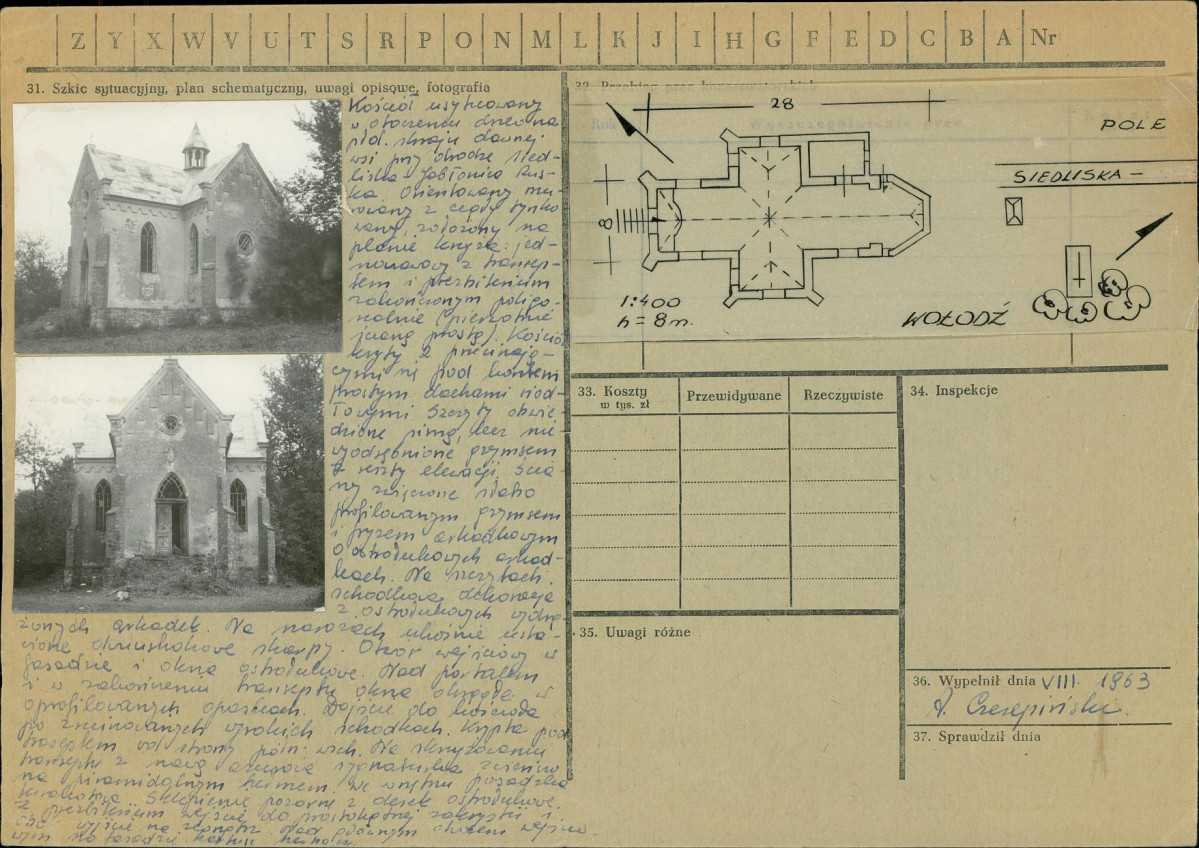 Z Y X W V U T S R P O N M L K J I H G F E D C B A Nr
31. Szkic sytuacyjny, plan schematyczny, uwagi opisowe, fotografia
Kościół usytuowany
w otoczeniu drzew na
skraju dawnej
wsi przy drodze Sied-
liska Jabłonica Rus-
ka. Orientowany mu-
rowany z cegły tynko
wany, założony na
planie krzyża: jed-
nonawowy z transep-
tem i prezbiterium
zakończonym poligo-
nalnie (pierwotnie
ścianą prostą). Kościół
kryty 2 przecinają-
cymi się pod kątem
prostym dachami siod-
łowymi Szczyty obwie-
dzione simą, lecz nie
wyodrębnione gzymsem
z reszty elewacji. Ścia-
ny zwieńczone słabo
profilowanym gzymsem
i fryzem arkadkowym
o ostrołukowych arkad-
kach. Na szczytach
schodkowa dekoracja
z ostrołukowych
arkadek. Na narożach ukośnie usta-
wione dwuskokowe skarpy. Otwór wejściowy w
fasadzie i okna ostrołukowe. Nad portalem
i w zakończeniu transeptu okna okrągłe w
oprofilowanych opaskach. Wejście do kościoła
po zrujnowanych wysokich schodkach. Krypta pod
transeptem od strony półn. wsch. Na skrzyżowaniu
transeptu z nawą sygnaturka
piramidalnym hełmem. We wnętrzu posadzka
Sklepienie pozorne z desek ostrołukowe.
Z prezbiterium wejście do prostokątnej zakrystii i
wyjście na zewnątrz. Nad głównym chórem
na fasadzie
28
8
1:400
h = 8 m.
POLE
SIEDLISKA —
WOŁODŹ
33. Koszty
w tys. zł
Przewidywane
Rzeczywiste
34. Inspekcje
35. Uwagi różne
36. Wypełnił dnia VIII. 1963
A. Czerepiński.
37. Sprawdził dnia